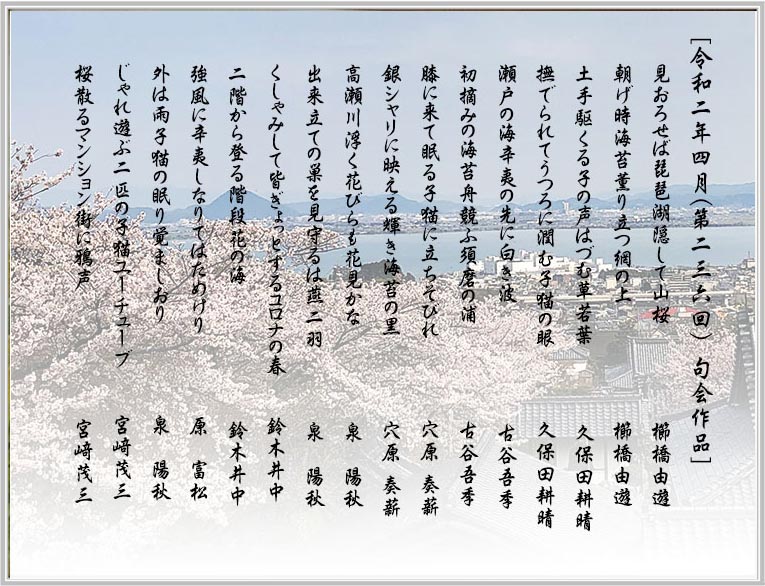 [令和二年四月(第二三六回) 句会作品]
見おろせば琵琶湖隠して山桜 櫛橋由遊
朝げ時海苔薫り立つ網の上 櫛橋由遊
土手駆くる子の声はづむ草若葉 久保田耕晴
撫でられてうつろに潤む子猫の眼 久保田耕晴
瀬戸の海辛夷の先に白き波 古谷吾季
初摘みの海苔舟競ふ須磨の浦 古谷吾季
膝に来て眠る子猫に立ちそびれ 穴原奏薪
銀シャリに映える輝き海苔の黒 穴原奏薪
高瀬川浮く花びらも花見かな 泉 陽秋
出来立ての巣を見守るは燕二羽 泉 陽秋
くしゃみして皆ぎょっとするコロナの春 鈴木井中
二階から登る階段花の海 鈴木井中
強風に辛夷しなりてはためけり 原 富松
外は雨子猫の眠り覚ましおり 泉 陽秋
じゃれ遊ぶ二匹の子猫ユーチューブ 宮﨑茂三
桜散るマンション街に鴉声 宮﨑茂三